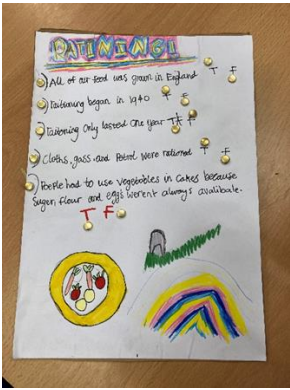 RATINING!
All of our food was grown in England T F
Rationing began in 1940 T F
Rationing Only lasted One year T F
Cloths, gass and Petrol were rationed T F
People had to use vegetables in cakes because
Sugar, flour and eggs werent always avalibale.
T F